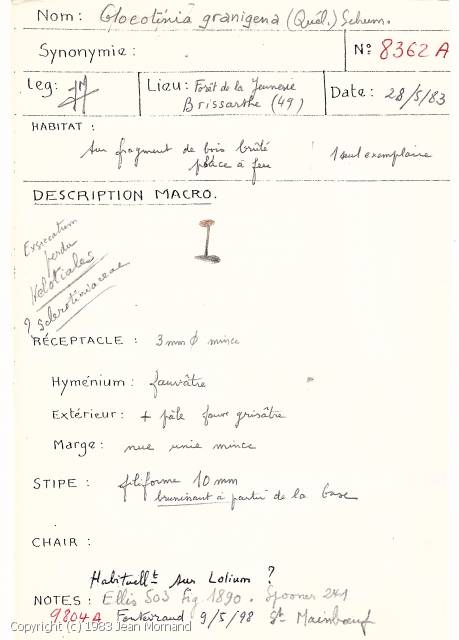 Nom: Gloeotinia granigena (Quél.) Schum.
Synonymie:
N° 8362 A
Leg: JM
Lieu: Forêt de la Jeunerie
Brissarthe (49)
Date: 28/5/83
HABITAT :
Sur fragment de bois brûlé
place à feu
1 seul exemplaire
DESCRIPTION MACRO.
Exsiccatum
perdu
Helotiales
? Sclerotiniaceae
RÉCEPTACLE : 3 mm ϕ mince
Hyménium: fauvâtre
Extérieur: + pâle fauve grisâtre
Marge: nue unie mince
STIPE : filiforme 10 mm
brunissant à partir de la base
CHAIR :
Habituellt sur Lolium ?
NOTES : Ellis 503 Fig. 1890. Spooner 241
9804 A Fontevraud 9/5/98 St Mainboeuf
Copyright (c) 1983 Jean Mornand